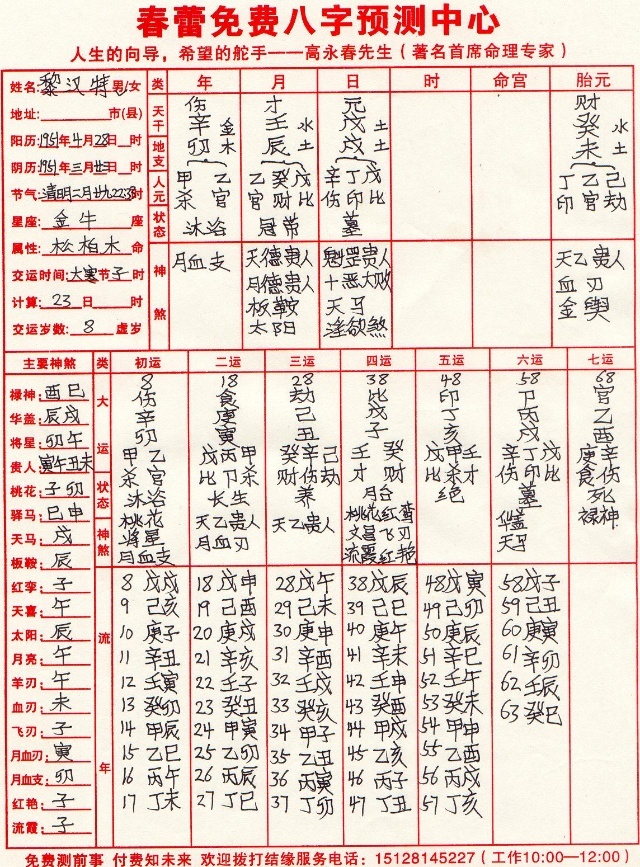 春蕾免费八字预测中心
人生的向导，希望的舵手——高永春先生（著名首席命理专家）
姓名：黎汉特 男/女 类 年 月 日 时 命宫 胎元
地址： 市(县)
阳历：1951年4月28日 时
阴历：1951年三月廿三日 时
节气：清明二月廿九22:33时
星座：金牛座
属性：松柏木命
交运时间：大寒节子时
计算：23日 时
交运岁数：8虚岁
天干 伤 才 元 财
辛金 壬水 戊土 癸水
地支 卯木 辰土 戌土 未土
人元 甲 乙 乙癸戊 辛丁戊 丁乙己
杀 官 官财比 伤印比 印官劫
状态 沐浴 冠带 墓
神煞 月血支 天德贵人 魁罡贵人 天乙贵人
月德贵人 十恶大败 血刃
板鞍 天马 金舆
太阳 淫欲煞
主要神煞 类 初运 二运 三运 四运 五运 六运 七运
禄神：酉巳
华盖：辰戌
将星：卯午
贵人：寅午丑未
桃花：子卯
驿马：巳申
天马：戌
板鞍：辰
红鸾：子
天喜：午
太阳：辰
月亮：午
羊刃：午
血刃：未
飞刃：子
月血刃：寅
月血支：卯
红艳：子
流霞：子
大运 8 18 28 38 48 58 68
伤 食 劫 比 印 卩 官
辛 庚 己 戊 丁 丙 乙
卯 寅 丑 子 亥 戌 酉
甲乙 戊丙甲 癸辛己 壬癸 戊甲壬 辛丁戊 庚辛
杀官 比卩杀 财伤劫 才财 比杀才 伤印比 食伤
状态 沐浴 长生 养 绝 墓 死
神煞 桃花 天乙贵人 天乙贵人 桃花红鸾 华盖 禄神
将星 月血刃 文昌飞刃 天马
月血支 流霞红艳
流年
8戊戌 18戊申 28戊午 38戊辰 48戊寅 58戊子
9己亥 19己酉 29己未 39己巳 49己卯 59己丑
10庚子 20庚戌 30庚申 40庚午 50庚辰 60庚寅
11辛丑 21辛亥 31辛酉 41辛未 51辛巳 61辛卯
12壬寅 22壬子 32壬戌 42壬申 52壬午 62壬辰
13癸卯 23癸丑 33癸亥 43癸酉 53癸未 63癸巳
14甲辰 24甲寅 34甲子 44甲戌 54甲申
15乙巳 25乙卯 35乙丑 45乙亥 55乙酉
16丙午 26丙辰 36丙寅 46丙子 56丙戌
17丁未 27丁巳 37丁卯 47丁丑 57丁亥
免费测前事 付费知未来 欢迎拨打结缘服务电话：15128145227（工作10:00—12:00）